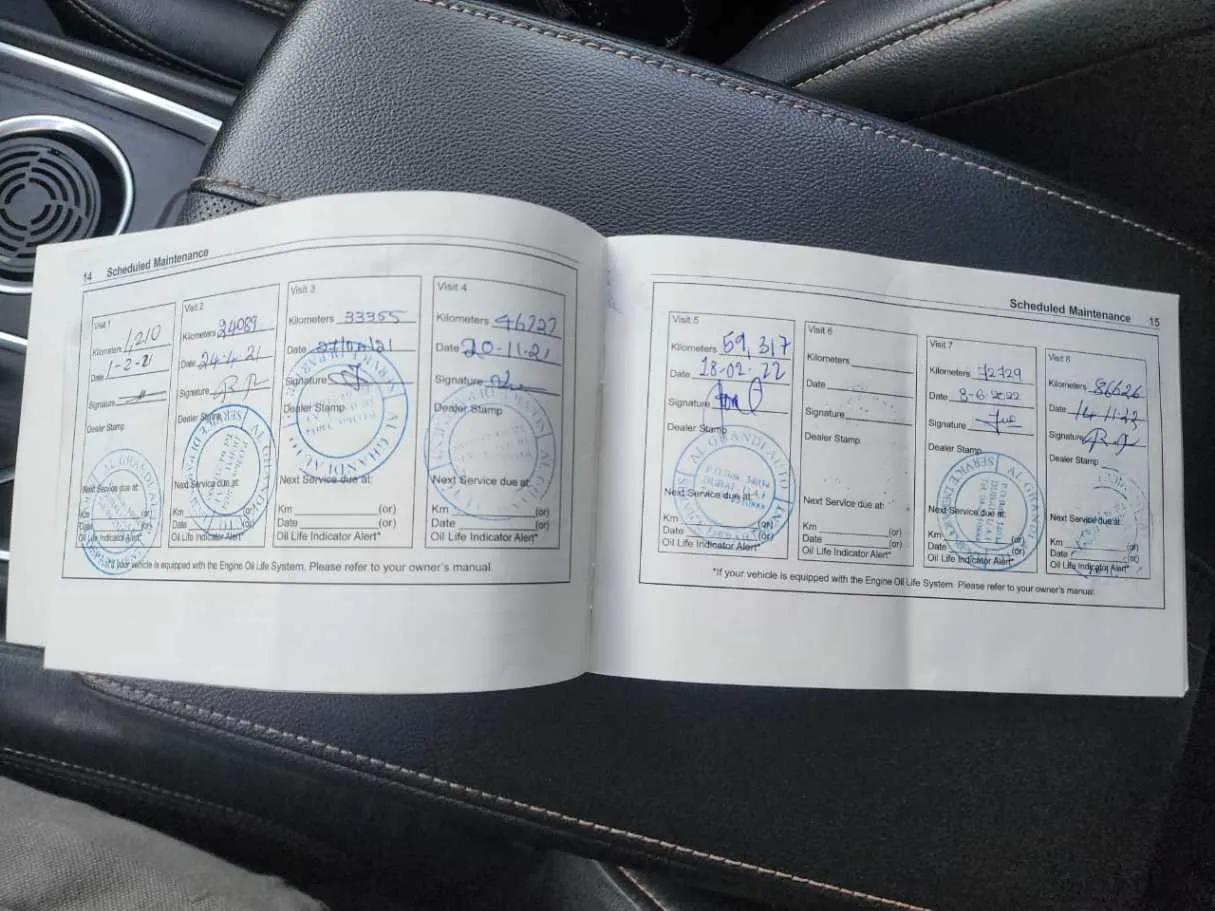 14 Scheduled Maintenance
Visit 1
Kilometers 1,210
Date 1-2-21
Signature
Dealer Stamp
AL GHANDI AUTO
Next Service due at:
Km (or)
Date (or)
Oil Life Indicator Alert*
Visit 2
Kilometers 24089
Date 24.4.21
Signature
Dealer Stamp
AL GHANDI
Next Service due at:
Km (or)
Date (or)
Oil Life Indicator Alert*
Visit 3
Kilometers 33355
Date
Signature
Dealer Stamp
AL GHANDI AUTO
Next Service due at:
Km (or)
Date (or)
Oil Life Indicator Alert*
Visit 4
Kilometers
Date 20-11-21
Signature
Dealer Stamp
Next Service due at:
Km (or)
Date (or)
Oil Life Indicator Alert*
*If your vehicle is equipped with the Engine Oil Life System. Please refer to your owner's manual.
Scheduled Maintenance 15
Visit 5
Kilometers 59,317
Date 18-02-22
Signature
Dealer Stamp
AL GHANDI AUTO
DUBAI, U.A.E
Next Service due at:
Km (or)
Date (or)
Oil Life Indicator Alert*
Visit 6
Kilometers
Date
Signature
Dealer Stamp
Next Service due at:
Km (or)
Date (or)
Oil Life Indicator Alert*
Visit 7
Kilometers 72729
Date 8-6-2022
Signature
Dealer Stamp
AL GHANDI
Next Service due at:
Km (or)
Date (or)
Oil Life Indicator Alert*
Visit 8
Kilometers 86626
Date
Signature
Dealer Stamp
Next Service due at:
Km (or)
Date (or)
Oil Life Indicator Alert*
*If your vehicle is equipped with the Engine Oil Life System. Please refer to your owner's manual.